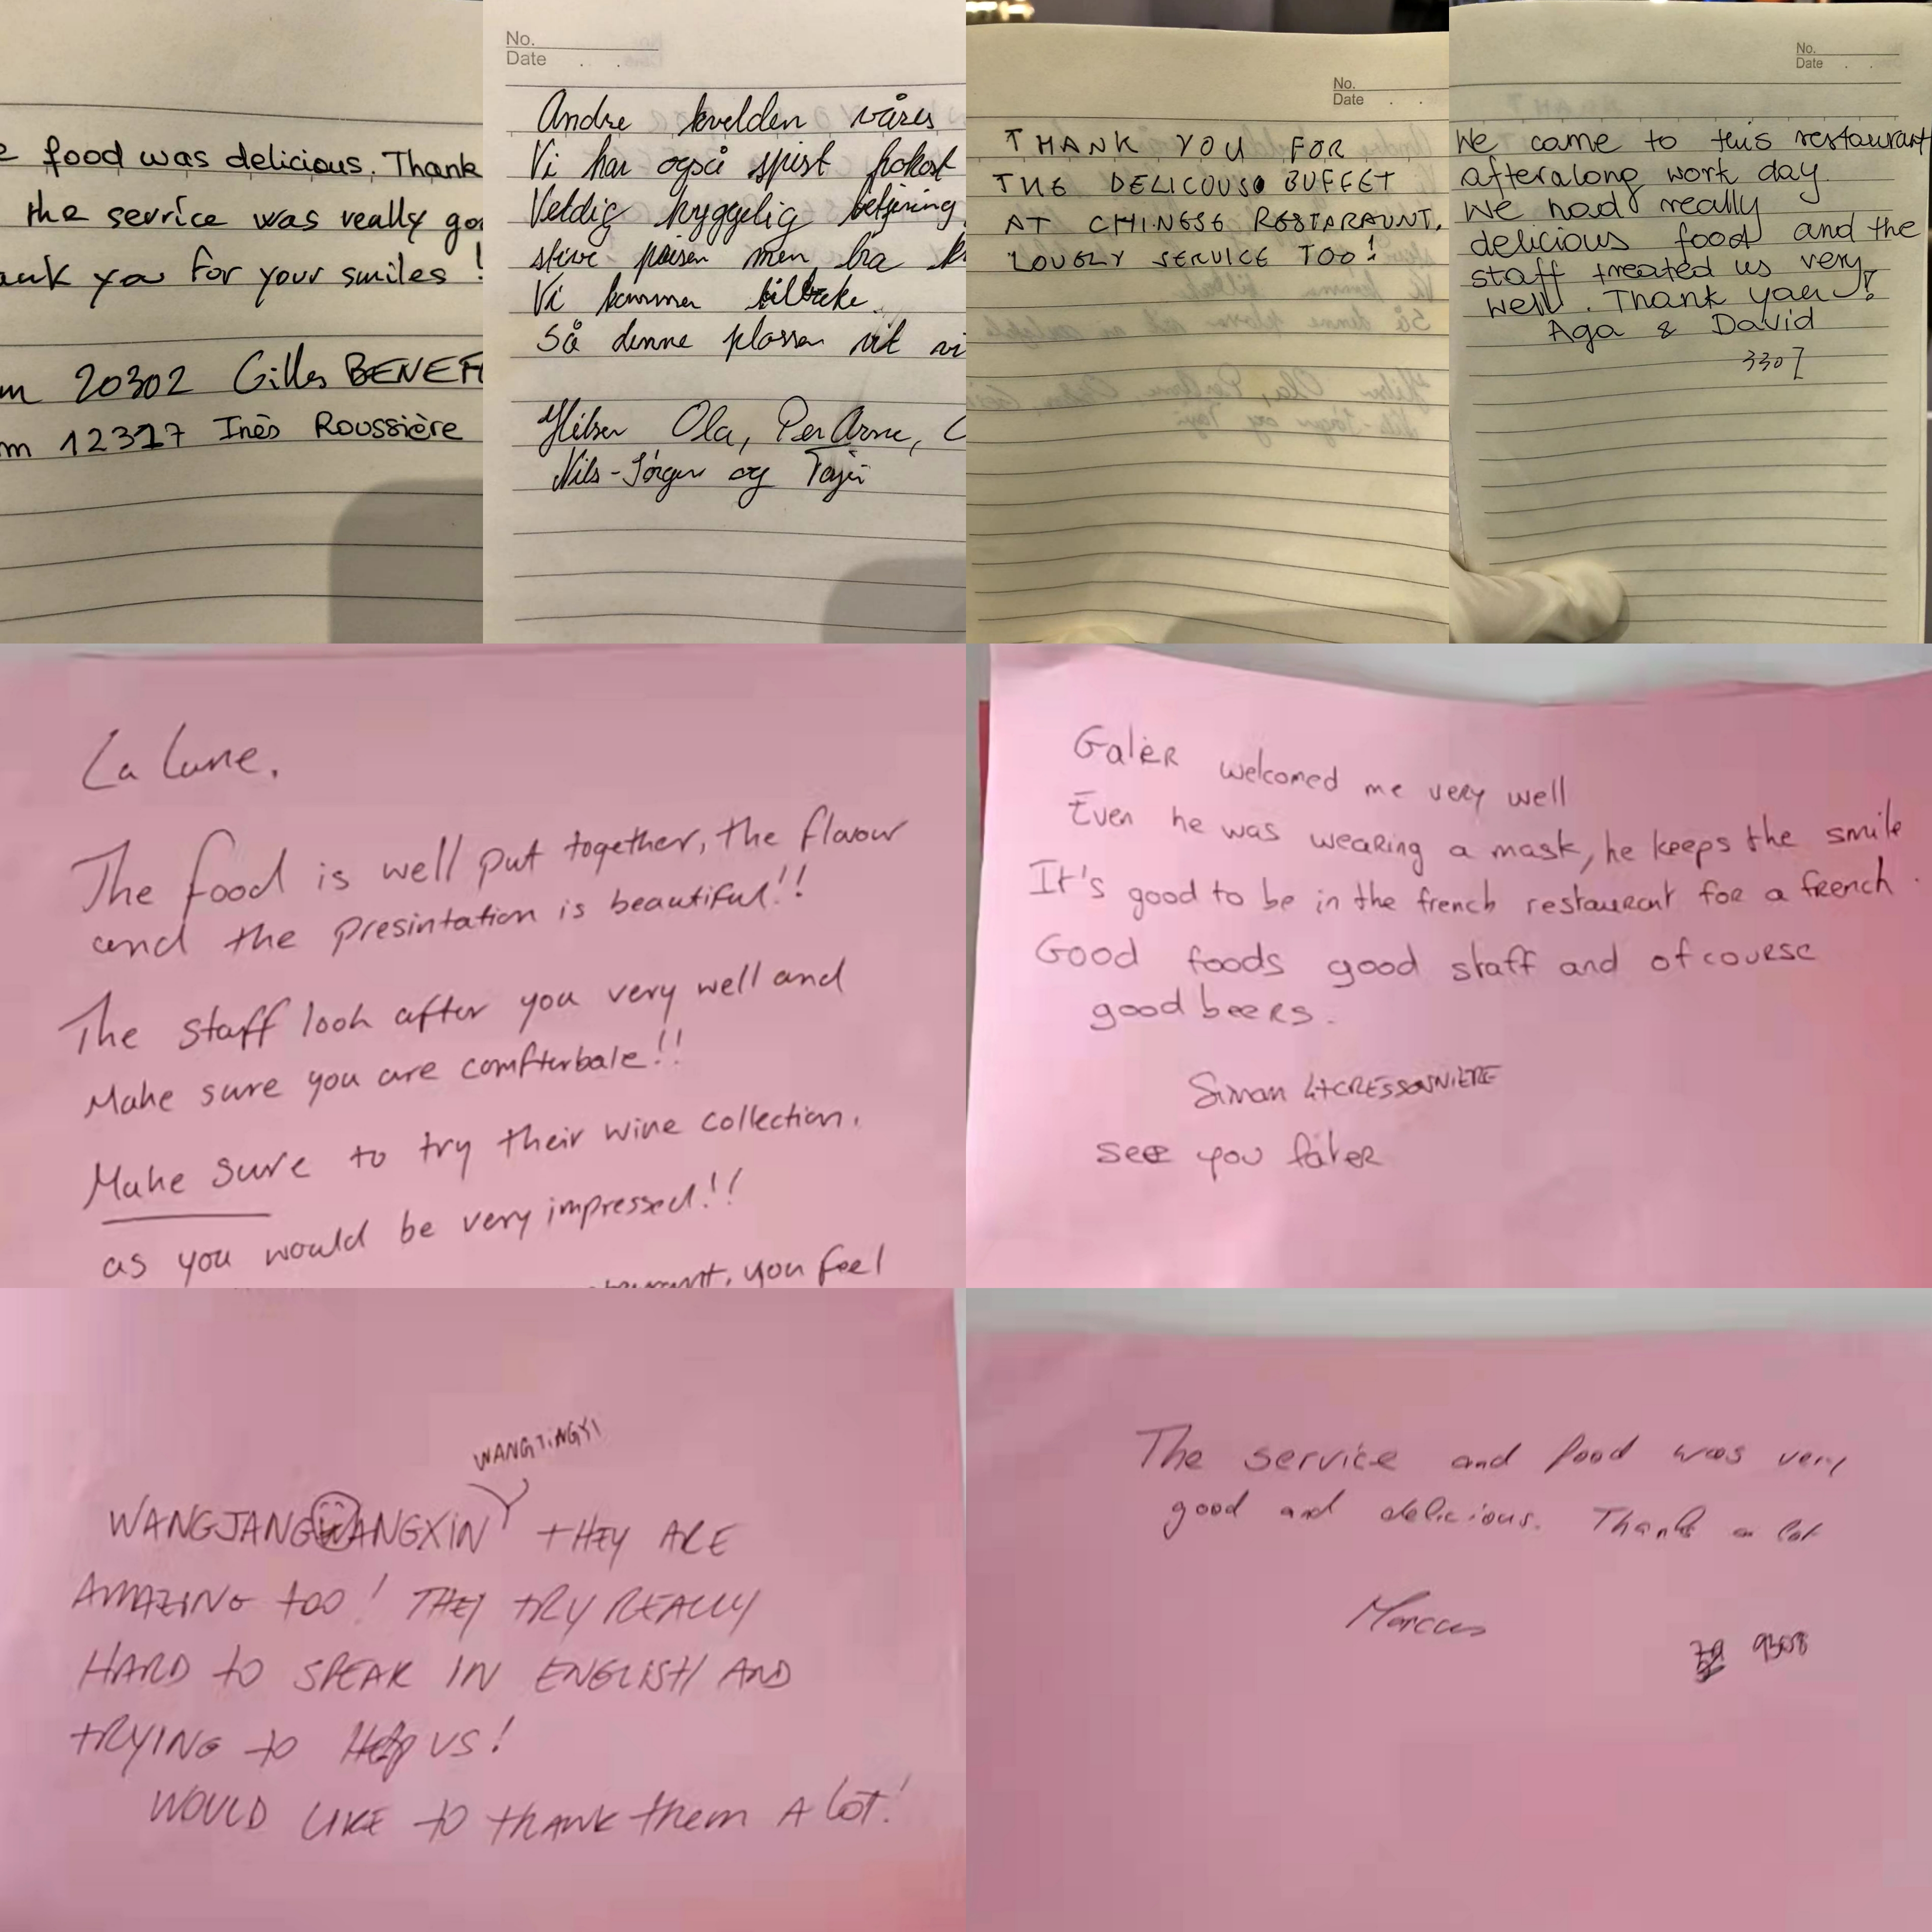 food was delicious. Thank
the service was really
you for your smiles !
20302 Gilles
12317 Inès Roussière
No.
Date
Andre kvelden våres
Vi har også spist frokost
Veldig hyggelig betjening
stive prisen men bra
Vi kommer tilbake.
Så denne plassen vil vi
Hilsen Ola, Per Arne,
Nils-Jørgen og
No.
Date
THANK YOU FOR
THE DELICOUSO BUFFET
AT CHINESE RESTARAUNT.
LOVELY SERVICE TOO!
No.
Date
We came to this restaurant
after a long work day.
We had really
delicious food and the
staff treated us very
well. Thank you!
Aga & David
3307
La Lune.
The food is well put together, the flavour
and the presintation is beautiful!!
The staff look after you very well and
Make sure you are comfterbale!!
Make sure to try their wine collection.
as you would be very impressed!!
you feel
Galèr welcomed me very well
Even he was wearing a mask, he keeps the smile
It's good to be in the french restaurant for a french.
Good foods good staff and of course
good beers.
Simon LACRESSONNIERE
see you later
WANGTINGYI
WANGJANG WANGXIN THEY ARE
AMAZING TOO! THEY TRY REALLY
HARD TO SPEAK IN ENGLISH AND
TRYING TO Help US!
WOULD LIKE TO THANK them A lot!
The service and food was very
good and delicious. Thanks a lot
Marcus
9308